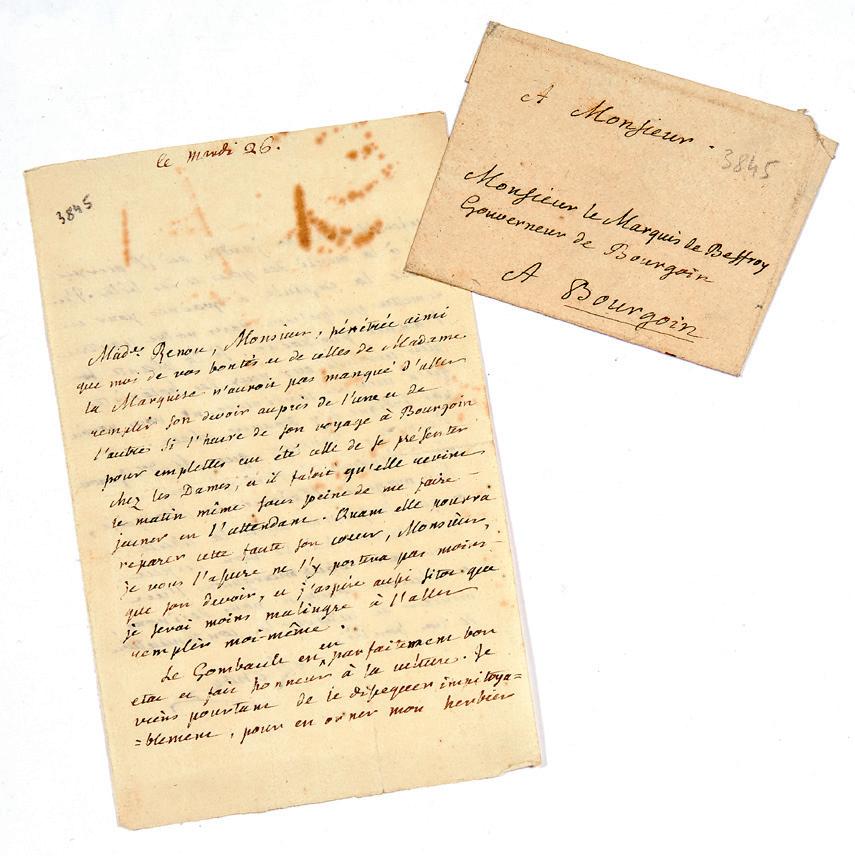 le mardi 26.
3845
Mad.e Renou, Monsieur, pénétrée ainsi
que moi de vos bontés et de celles de Madame
la Marquise n'auroit pas manqué d'aller
remplir son devoir auprès de l'une et de
l'autre si l'heure de son voyage à Bourgoin
pour emplettes eut été celle de se présenter
chez les Dames, et il faloit qu'elle revint
le matin même sous peine de me faire
jeuner en l'attendant. Quand elle pourra
réparer cette faute son cœur, Monsieur,
je vous l'assure ne l'y portera pas moins
que son devoir, et j'aspire aussi sitot que
je serai moins malingre à l'aller
remplir moi-même.
Le Gombault en en parfaitement bon
etat et fait honneur à la voiture. Je
viens pourtant de le dissequer impitoya=
=blement, pour en orner mon herbier
A Monsieur.
3845
Monsieur le Marquis de Beffroy
Gouverneur de Bourgoin
A Bourgoin